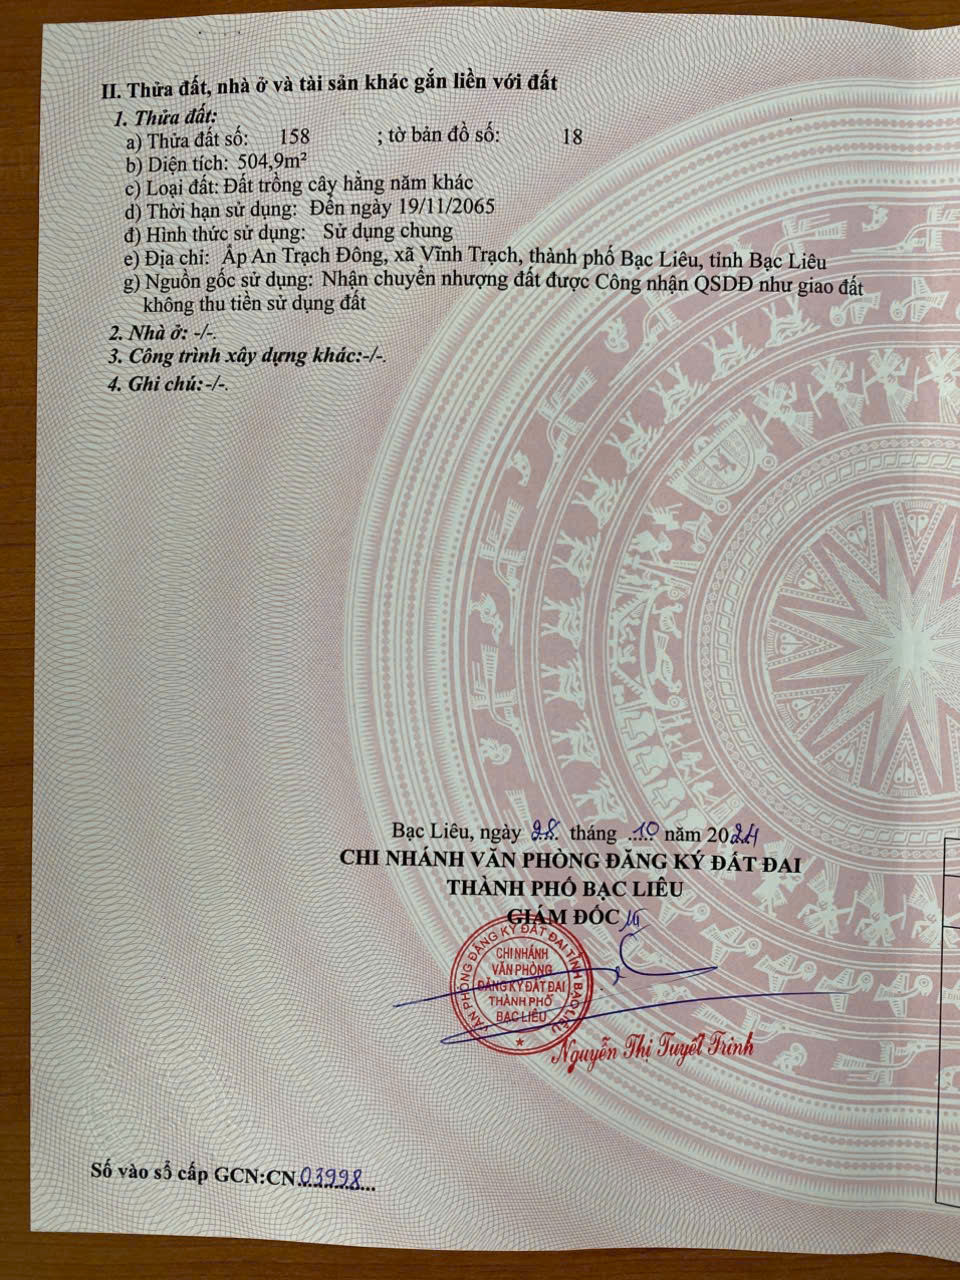 II. Thửa đất, nhà ở và tài sản khác gắn liền với đất
1. Thửa đất:
a) Thửa đất số: 158 ; tờ bản đồ số: 18
b) Diện tích: 504,9m²
c) Loại đất: Đất trồng cây hằng năm khác
d) Thời hạn sử dụng: Đến ngày 19/11/2065
đ) Hình thức sử dụng: Sử dụng chung
e) Địa chỉ: Ấp An Trạch Đông, xã Vĩnh Trạch, thành phố Bạc Liêu, tỉnh Bạc Liêu
g) Nguồn gốc sử dụng: Nhận chuyển nhượng đất được Công nhận QSDĐ như giao đất
không thu tiền sử dụng đất
2. Nhà ở: -/-.
3. Công trình xây dựng khác:-/-.
4. Ghi chú:-/-.
Bạc Liêu, ngày 28 tháng 10 năm 2024
CHI NHÁNH VĂN PHÒNG ĐĂNG KÝ ĐẤT ĐAI
THÀNH PHỐ BẠC LIÊU
GIÁM ĐỐC
VĂN PHÒNG ĐĂNG KÝ ĐẤT ĐAI TỈNH BẠC LIÊU
CHI NHÁNH
VĂN PHÒNG
ĐĂNG KÝ ĐẤT ĐAI
THÀNH PHỐ
BẠC LIÊU
Nguyễn Thị Tuyết Trinh
Số vào sổ cấp GCN:CN 03998